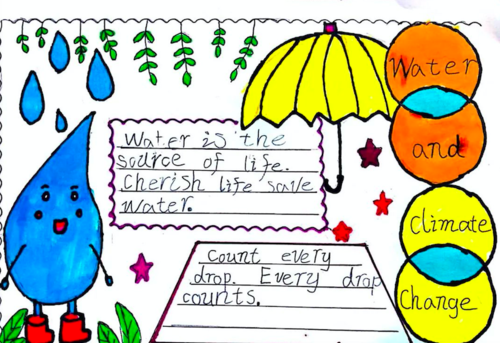 Water is the
source of life.
Cherish life save
water.
Count every
drop. Every drop
counts.
Water
and
Climate
Change